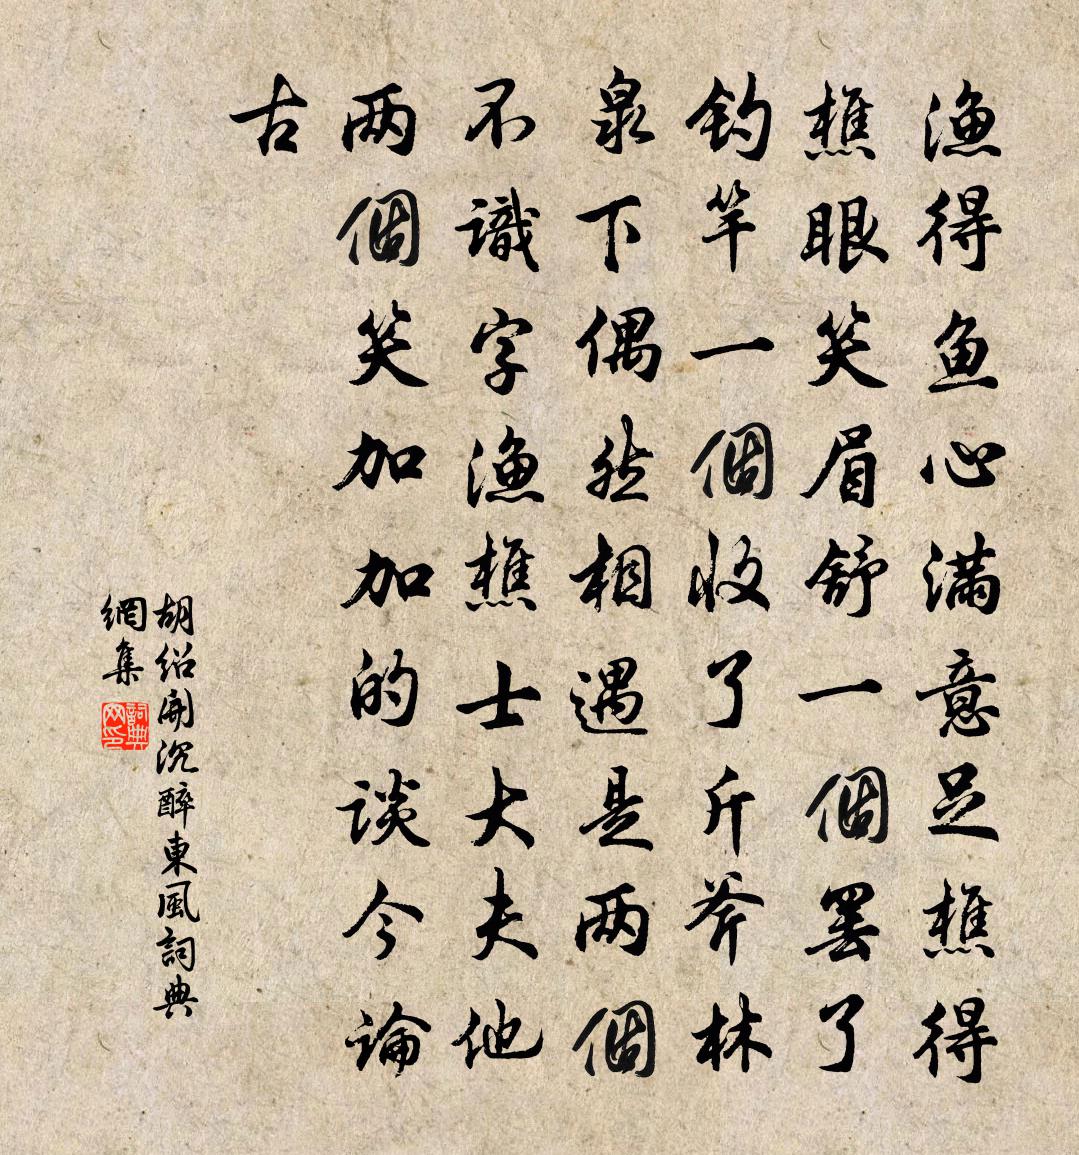 渔得鱼心满意足樵得
樵眼笑眉舒一個罢了
钓竿一個收了斤斧林
泉下偶然相遇是两個
不識字渔樵士大夫他
两個笑加加的谈今論
古
胡绍開沉醉東風詞典
網集
詞典
网印